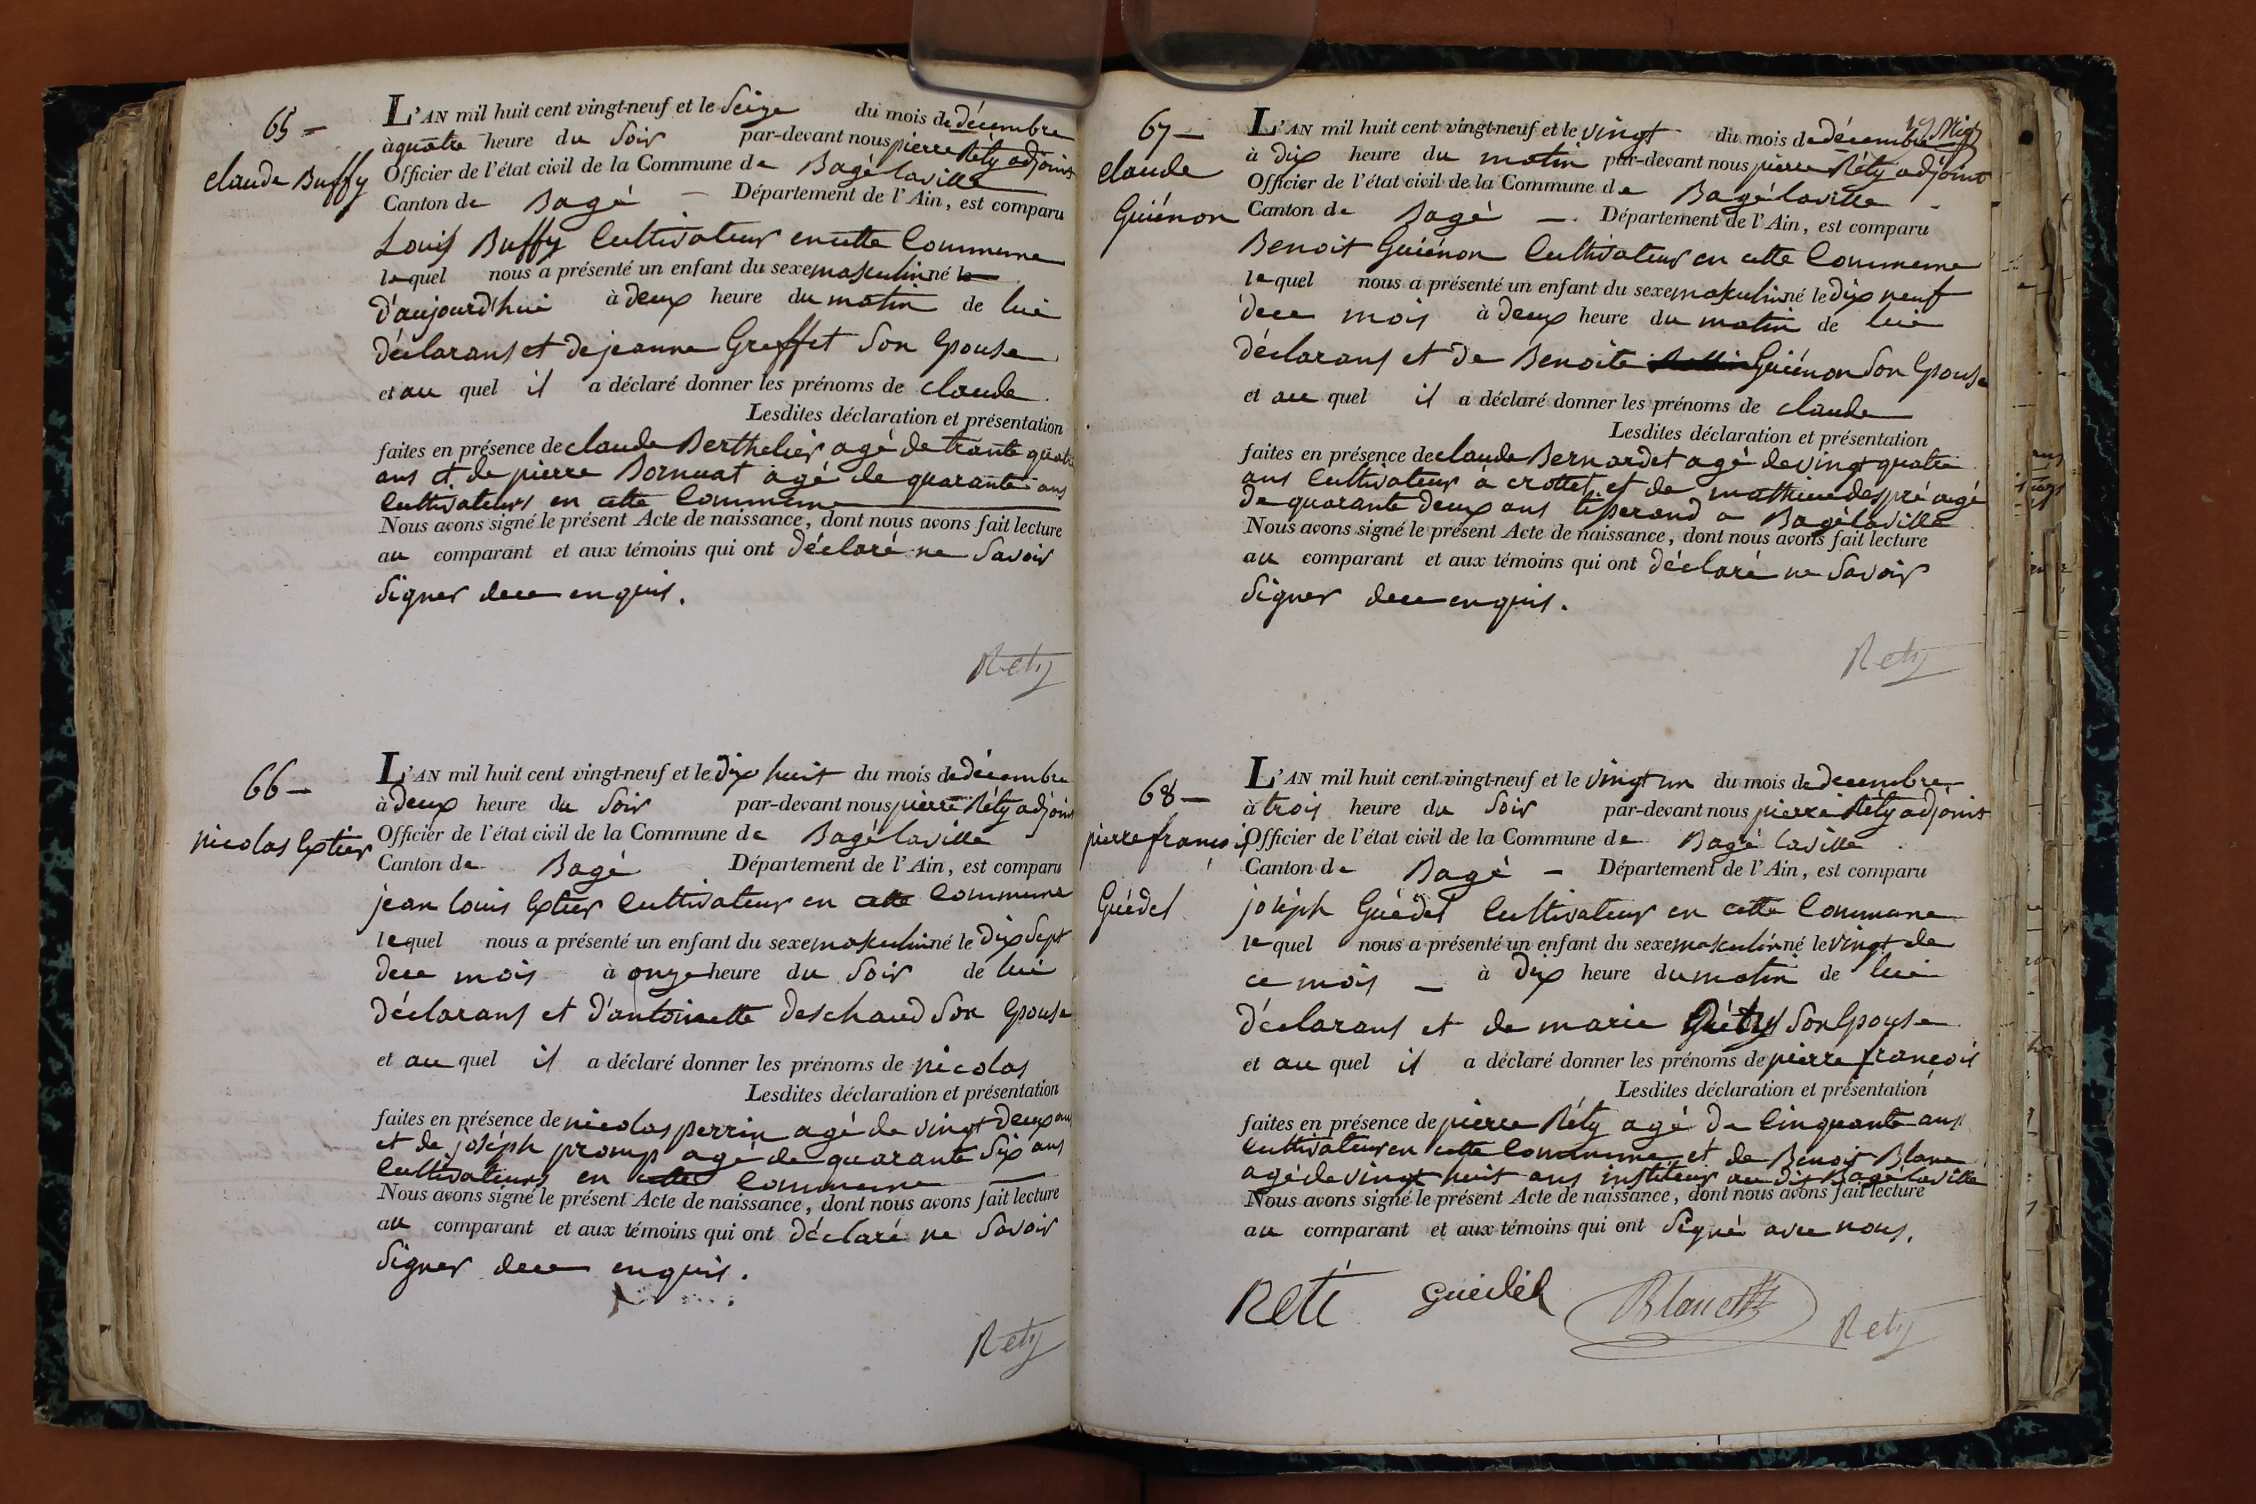 65 —
claude Buffy
L'AN mil huit cent vingt-neuf et le Seize du mois de décembre
à quatre heure du Soir par-devant nous pierre Réty adjoint
Officier de l'état civil de la Commune de Bagélaville
Canton de Bagé — Département de l'Ain, est comparu
Louis Buffy Cultivateur en cette Commune
lequel nous a présenté un enfant du sexe masculin né le
d'aujourd'hui à deux heure du matin de lui
déclarans et de jeanne Greffet Son Epouse
et au quel il a déclaré donner les prénoms de claude
Lesdites déclaration et présentation
faites en présence de claude Berthelier agé de trante quatre
ans et de pierre Bornuat agé de quarante ans
Cultivateurs en cette Commune
Nous avons signé le présent Acte de naissance, dont nous avons fait lecture
au comparant et aux témoins qui ont déclaré ne Savoir
Signer de ce enquis.
Rety
66 —
nicolas Extier
L'AN mil huit cent vingt-neuf et le dix huit du mois de décembre
à deux heure du Soir par-devant nous pierre Réty adjoint
Officier de l'état civil de la Commune de Bagélaville
Canton de Bagé Département de l'Ain, est comparu
jean louis Extier Cultivateur en cette Commune
lequel nous a présenté un enfant du sexe masculin né le dix Sept
de ce mois à onze heure du Soir de lui
déclarans et d'antoinette deschaud Son Epouse
et au quel il a déclaré donner les prénoms de nicolas
Lesdites déclaration et présentation
faites en présence de nicolas perrin agé de vingt deux ans
et de joséph promp agé de quarante Six ans
Cultivateurs en cette Commune
Nous avons signé le présent Acte de naissance, dont nous avons fait lecture
au comparant et aux témoins qui ont déclaré ne Savoir
Signer de ce enquis.
Rety
67 —
claude
Guiénon
L'AN mil huit cent vingt-neuf et le vingt du mois de décembre
à dix heure du matin par-devant nous pierre Réty adjoint
Officier de l'état civil de la Commune de Bagélaville
Canton de Bagé — Département de l'Ain, est comparu
Benoit Guiénon Cultivateur en cette Commune
lequel nous a présenté un enfant du sexe masculin né le dix neuf
de ce mois à deux heure du matin de lui
déclarans et de Benoite Guiénon Son Epouse
et au quel il a déclaré donner les prénoms de claude
Lesdites déclaration et présentation
faites en présence de claude Bernardet agé de vingt quatre
ans Cultivateur à crottet et de mathieu despré agé
de quarante deux ans tiserand a Bagélaville
Nous avons signé le présent Acte de naissance, dont nous avons fait lecture
au comparant et aux témoins qui ont déclaré ne Savoir
Signer de ce enquis.
Rety
68 —
pierre françois
Guédel
L'AN mil huit cent vingt-neuf et le vingt un du mois de decembre
à trois heure du Soir par-devant nous pierre Réty adjoint
Officier de l'état civil de la Commune de Bagé laville
Canton de Bagé — Département de l'Ain, est comparu
joséph Guédel Cultivateur en cette Commune
lequel nous a présenté un enfant du sexe masculin né le vingt de
ce mois — à dix heure du matin de lui
déclarans et de marie Réty Son Epouse
et au quel il a déclaré donner les prénoms de pierre françois
Lesdites déclaration et présentation
faites en présence de pierre Réty agé de Cinquante ans
Cultivateur en cette Commune et de Benoit Blanc
agé de vingt huit ans institeur au dit Bagélaville
Nous avons signé le présent Acte de naissance, dont nous avons fait lecture
au comparant et aux témoins qui ont Signé avec nous.
Reti Guédel Blanc Rety